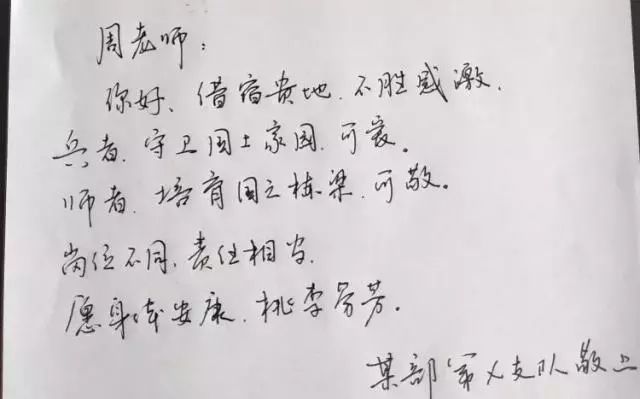 周老师：
你好、借宿贵地、不胜感激、
兵者、守卫国土家园、可哀。
师者、培育国之栋梁、可敬。
岗位不同、责任相当、
愿身体安康、桃李芬芳。
某部第X支队敬上